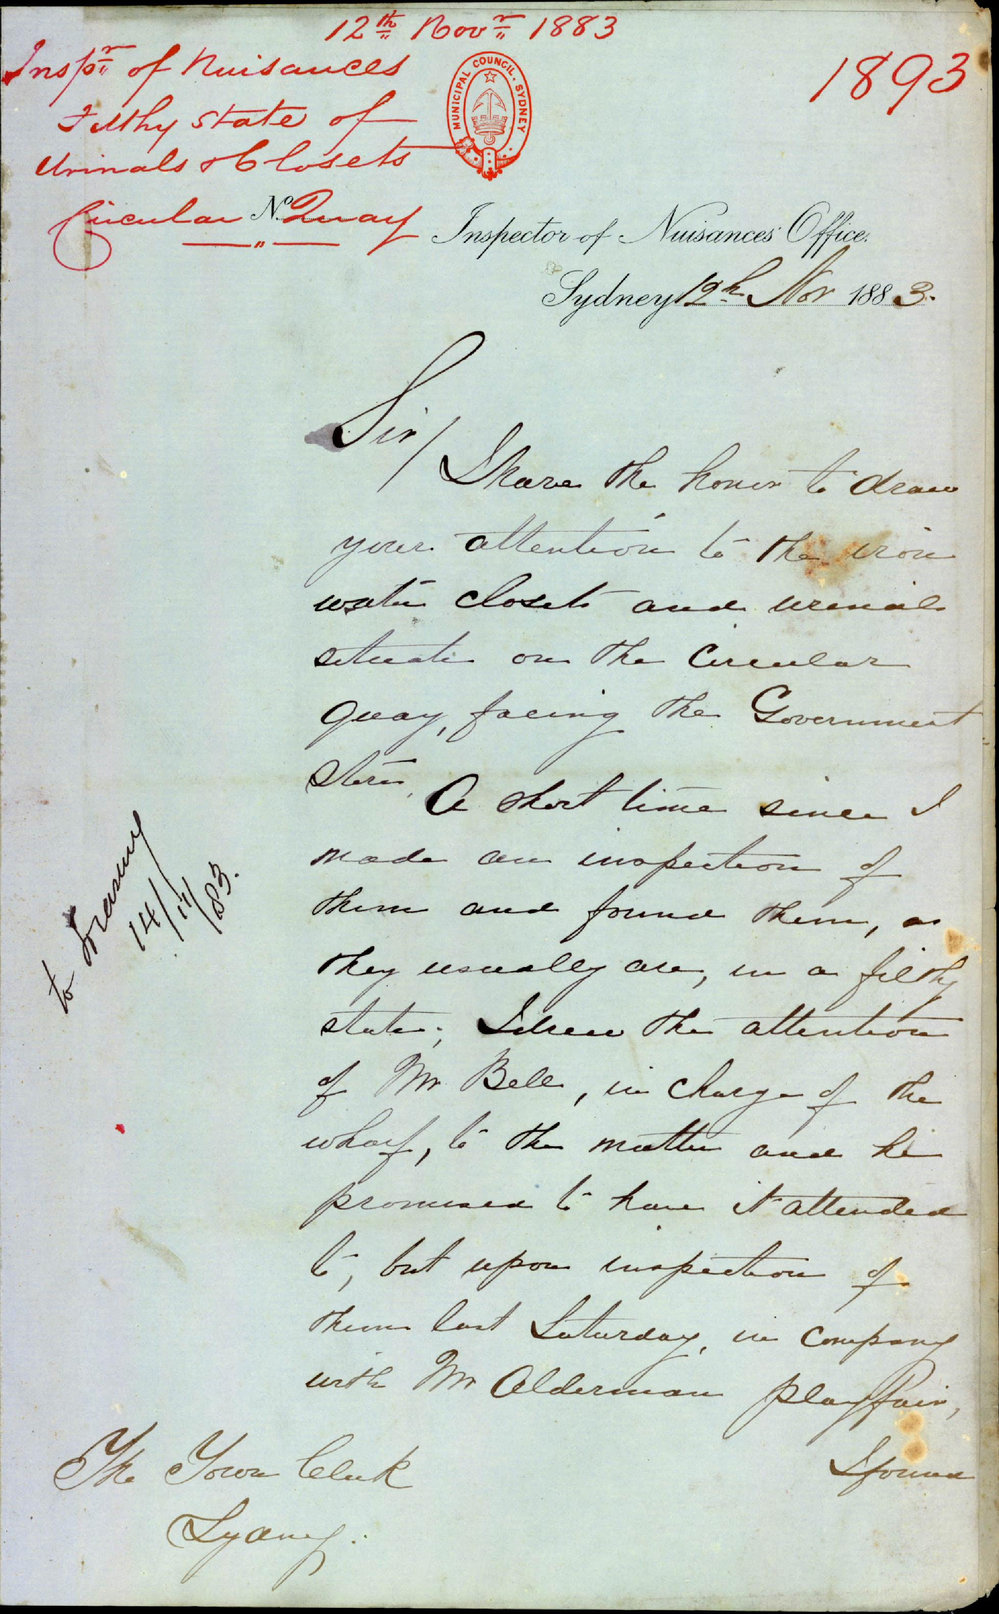 12th Novr 1883
1893
Inspr of Nuisances
Filthy state of
Urinals & Closets
Circular Quay
No
MUNICIPAL COUNCIL. SYDNEY
Inspector of Nuisances' Office.
Sydney 12th Nov 1883.
Sir/
I have the honor to draw
your attention to the iron
water closets and urinals
situate on the Circular
Quay, facing the Government
store.
A short time since I
made an inspection of
them and found them, as
they usually are, in a filthy
state; I drew the attention
of Mr Bell, in charge of the
wharf, to the matter and he
promised to have it attended
to, but upon inspection of
them last Saturday, in company
with Mr Alderman Playfair,
I found
The Town Clerk
Sydney.
to Treasury
14/11/83.